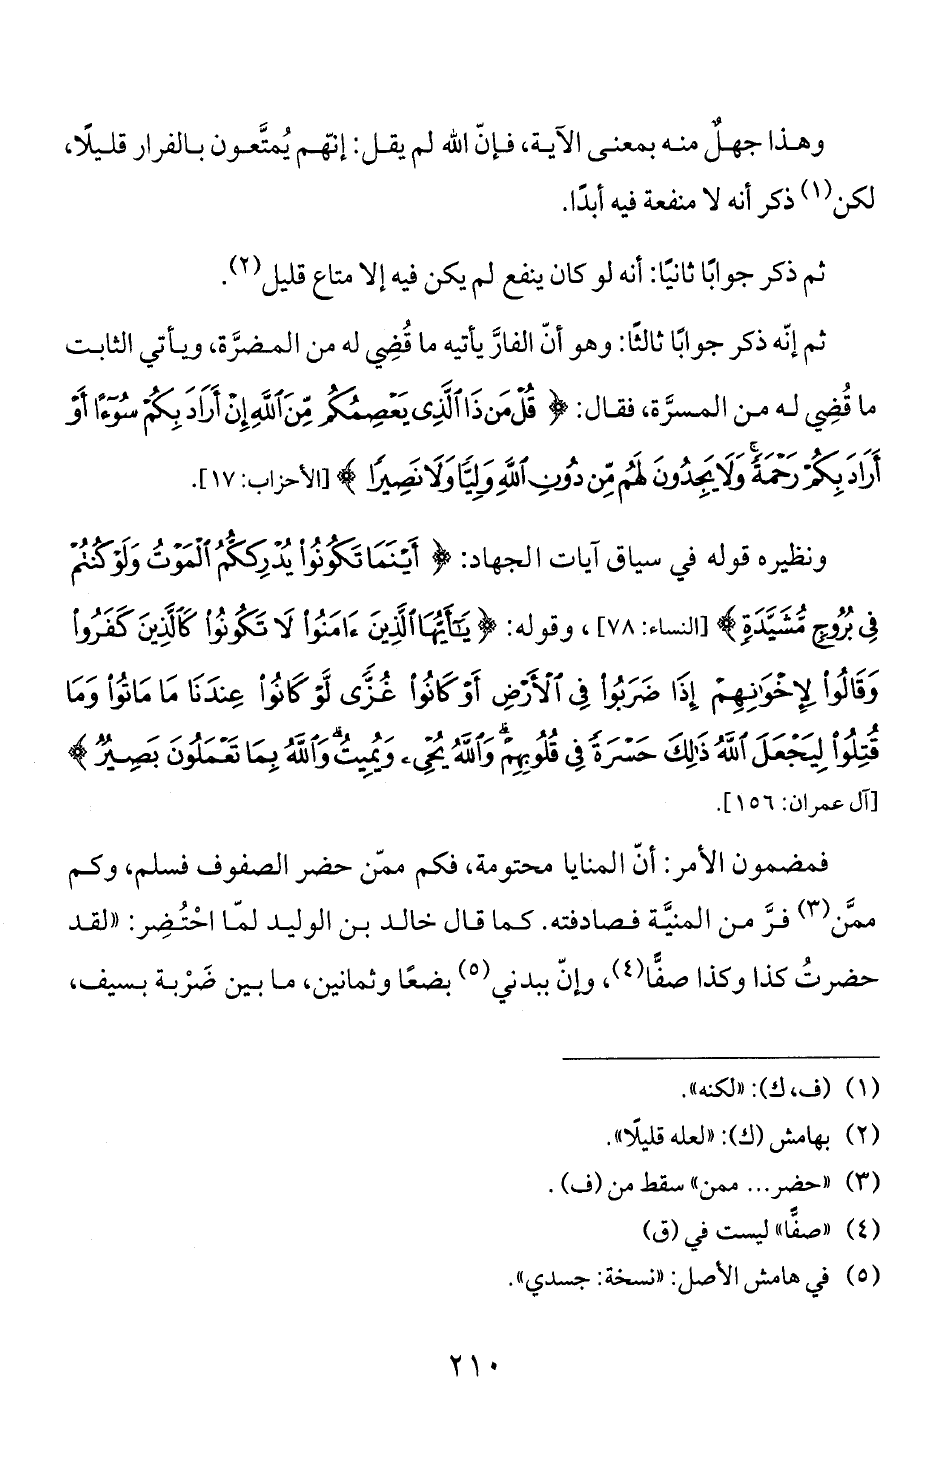 وهذا جهلٌ منه بمعنى الآية، فإنّ الله لم يقل: إنّهم يُمتَّعون بالفرار قليلًا،
لكن(١) ذكر أنه لا منفعة فيه أبدًا.
ثم ذكر جوابًا ثانيًا: أنه لو كان ينفع لم يكن فيه إلا متاع قليل(٢).
ثم إنّه ذكر جوابًا ثالثًا: وهو أنّ الفارّ يأتيه ما قُضِي له من المضرَّة، ويأتي الثابت
ما قُضِي له من المسرَّة، فقال: ﴿ قُلْ مَن ذَا ٱلَّذِى يَعْصِمُكُم مِّنَ ٱللَّهِ إِنْ أَرَادَ بِكُمْ سُوٓءًا أَوْ
أَرَادَ بِكُمْ رَحْمَةً ۚ وَلَا يَجِدُونَ لَهُم مِّن دُونِ ٱللَّهِ وَلِيًّا وَلَا نَصِيرًا ﴾ [الأحزاب: ١٧].
ونظيره قوله في سياق آيات الجهاد: ﴿ أَيْنَمَا تَكُونُوا۟ يُدْرِككُّمُ ٱلْمَوْتُ وَلَوْ كُنتُمْ
فِى بُرُوجٍ مُّشَيَّدَةٍ ﴾ [النساء: ٧٨]، وقوله: ﴿ يَٰٓأَيُّهَا ٱلَّذِينَ ءَامَنُوا۟ لَا تَكُونُوا۟ كَٱلَّذِينَ كَفَرُوا۟
وَقَالُوا۟ لِإِخْوَٰنِهِمْ إِذَا ضَرَبُوا۟ فِى ٱلْأَرْضِ أَوْ كَانُوا۟ غُزًّى لَّوْ كَانُوا۟ عِندَنَا مَا مَاتُوا۟ وَمَا
قُتِلُوا۟ لِيَجْعَلَ ٱللَّهُ ذَٰلِكَ حَسْرَةً فِى قُلُوبِهِمْ ۗ وَٱللَّهُ يُحْىِۦ وَيُمِيتُ ۗ وَٱللَّهُ بِمَا تَعْمَلُونَ بَصِيرٌ ﴾
[آل عمران: ١٥٦].
فمضمون الأمر: أنّ المنايا محتومة، فكم ممّن حضر الصفوف فسلم، وكم
ممَّن(٣) فرَّ من المنيَّة فصادفته. كما قال خالد بن الوليد لمّا احْتُضِر: «لقد
حضرتُ كذا وكذا صفًّا(٤)، وإنّ ببدني(٥) بضعًا وثمانين، ما بين ضَرْبة بسيف،
(١) (ف، ك): «لكنه».
(٢) بهامش (ك): «لعله قليلًا».
(٣) «حضر... ممن» سقط من (ف).
(٤) «صفًّا» ليست في (ق)
(٥) في هامش الأصل: «نسخة: جسدي».
٢١٠